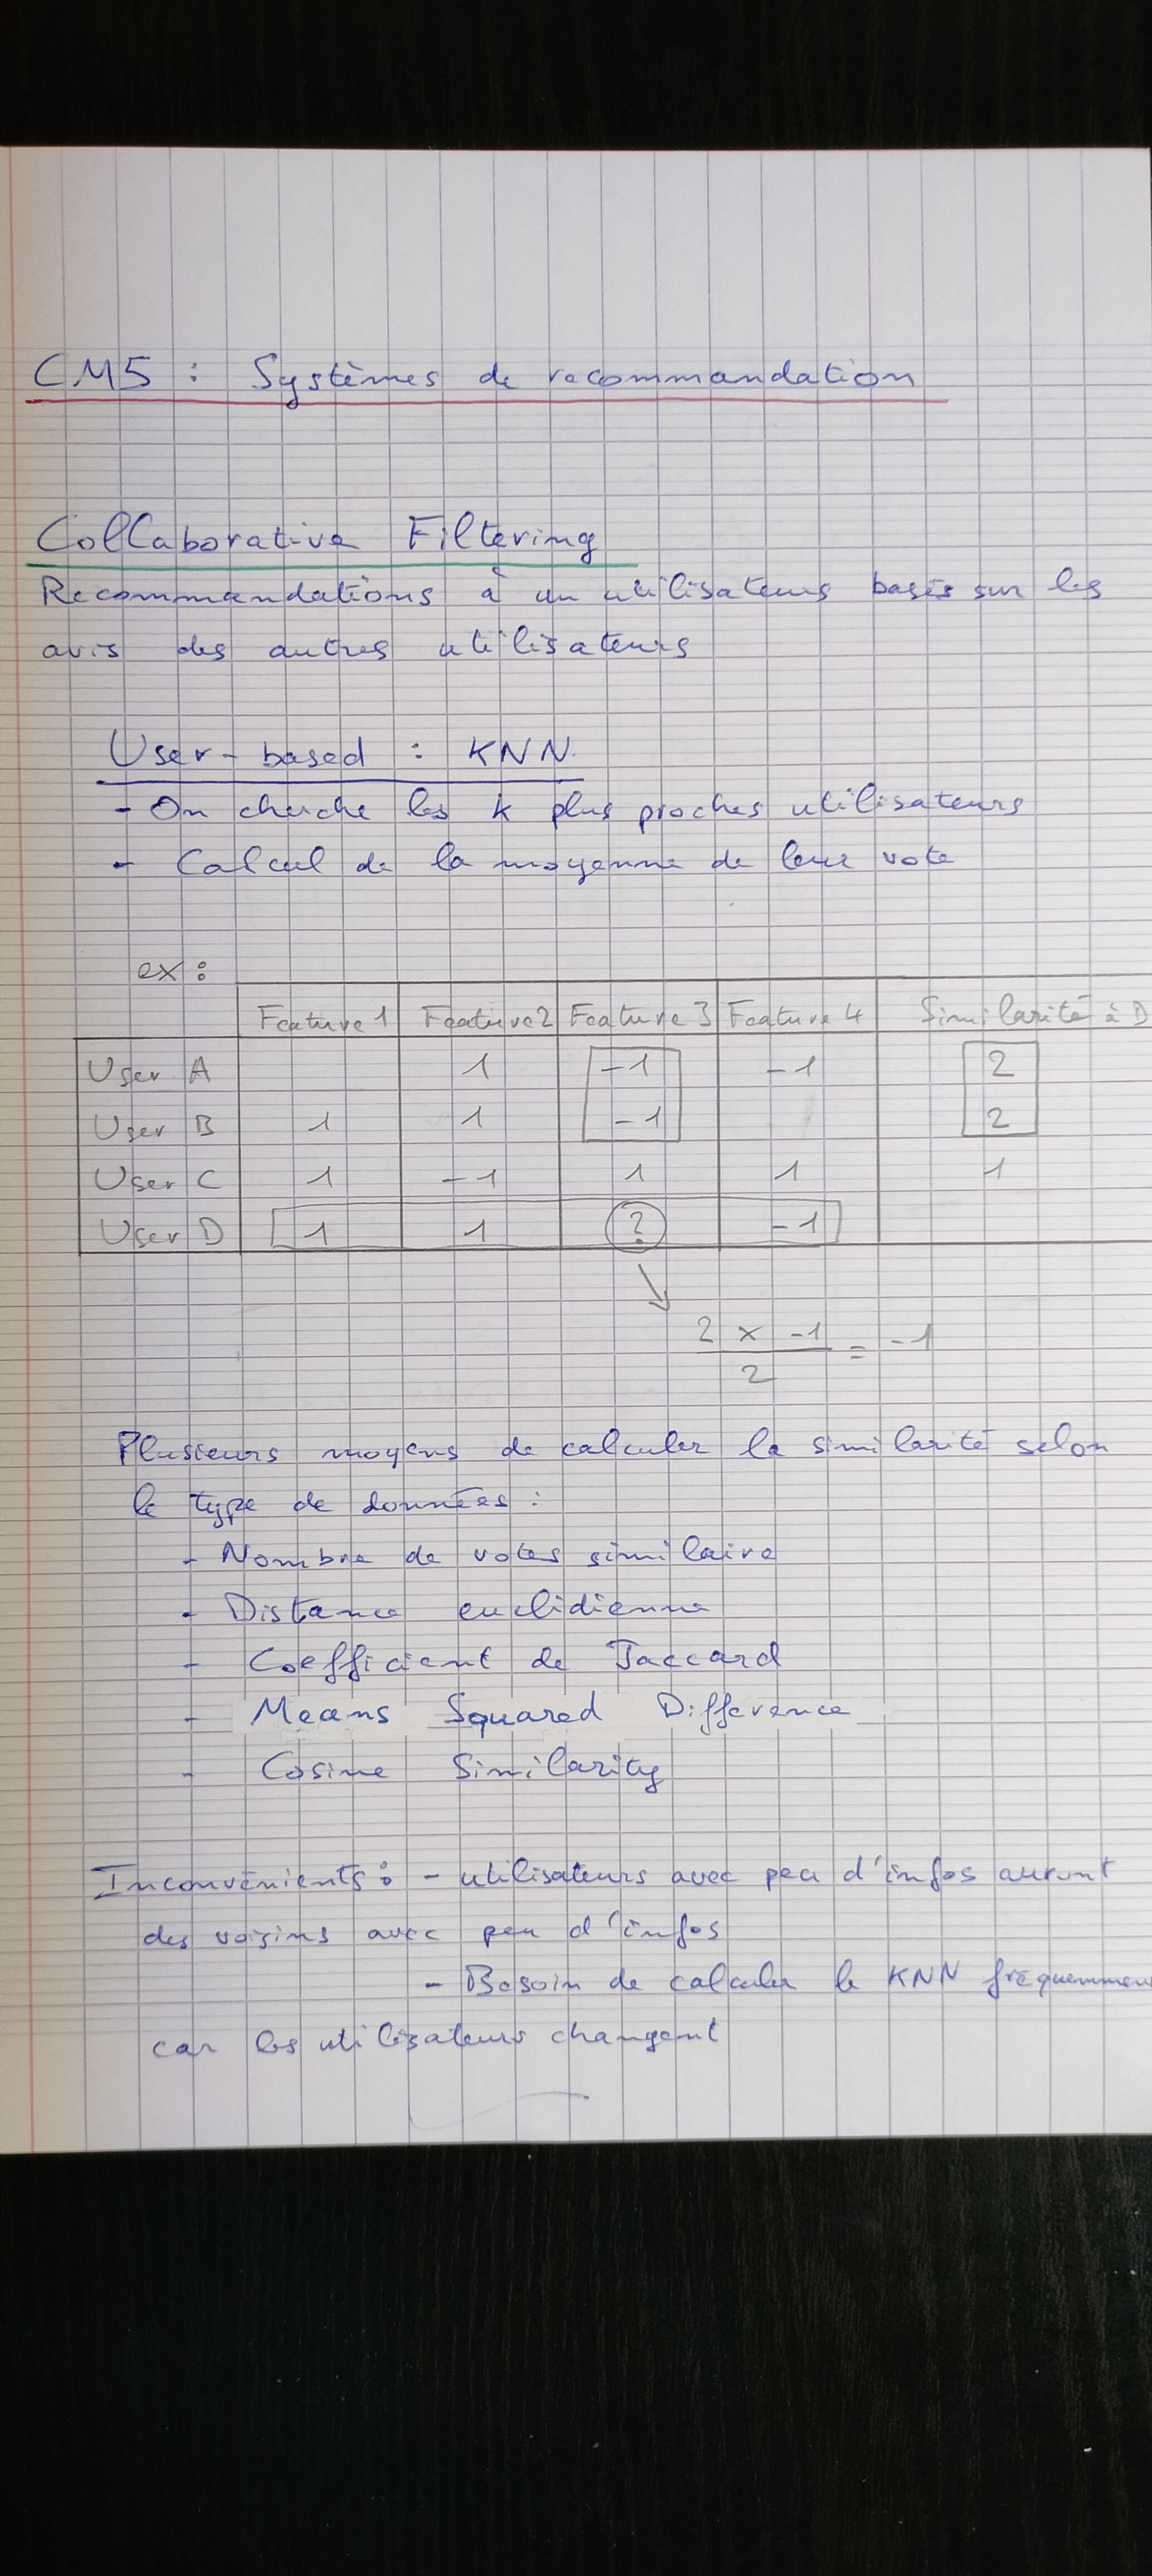 CM5 : Systèmes de recommandation
Collaborative Filtering
Recommandations à un utilisateurs basés sur les
avis des autres utilisateurs
User-based : KNN
- On cherche les k plus proches utilisateurs
- Calcul de la moyenne de leur vote
ex :
Feature 1 Feature 2 Feature 3 Feature 4 Similarité à D
User A 1 -1 -1 2
User B 1 1 -1 2
User C 1 -1 1 1 1
User D 1 1 ? -1
2 x -1 = -1
2
Plusieurs moyens de calculer la similarité selon
le type de données :
- Nombre de votes similaire
- Distance euclidienne
- Coefficient de Jaccard
- Means Squared Difference
- Cosine Similarity
Inconvénients : - utilisateurs avec peu d'infos auront
des voisins avec peu d'infos
- Besoin de calculer le KNN fréquemmen
car les utilisateurs changent